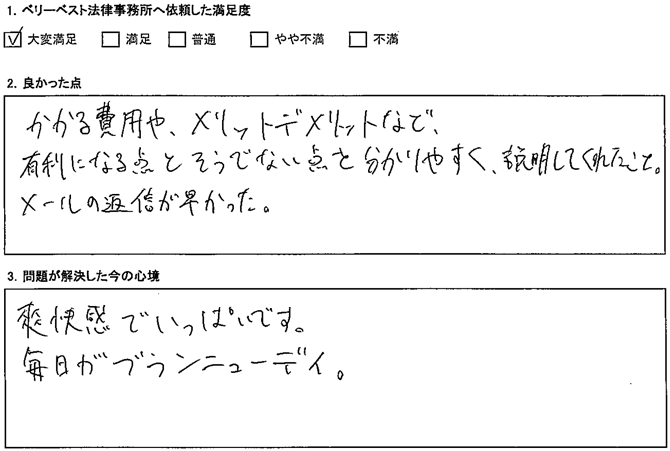 1. ベリーベスト法律事務所へ依頼した満足度
☑ 大変満足 □ 満足 □ 普通 □ やや不満 □ 不満
2. 良かった点
かかる費用や、メリットデメリットなど、
有利になる点とそうでない点を分かりやすく、説明してくれたこと。
メールの返信が早かった。
3. 問題が解決した今の心境
爽快感でいっぱいです。
毎日がブランニューデイ。